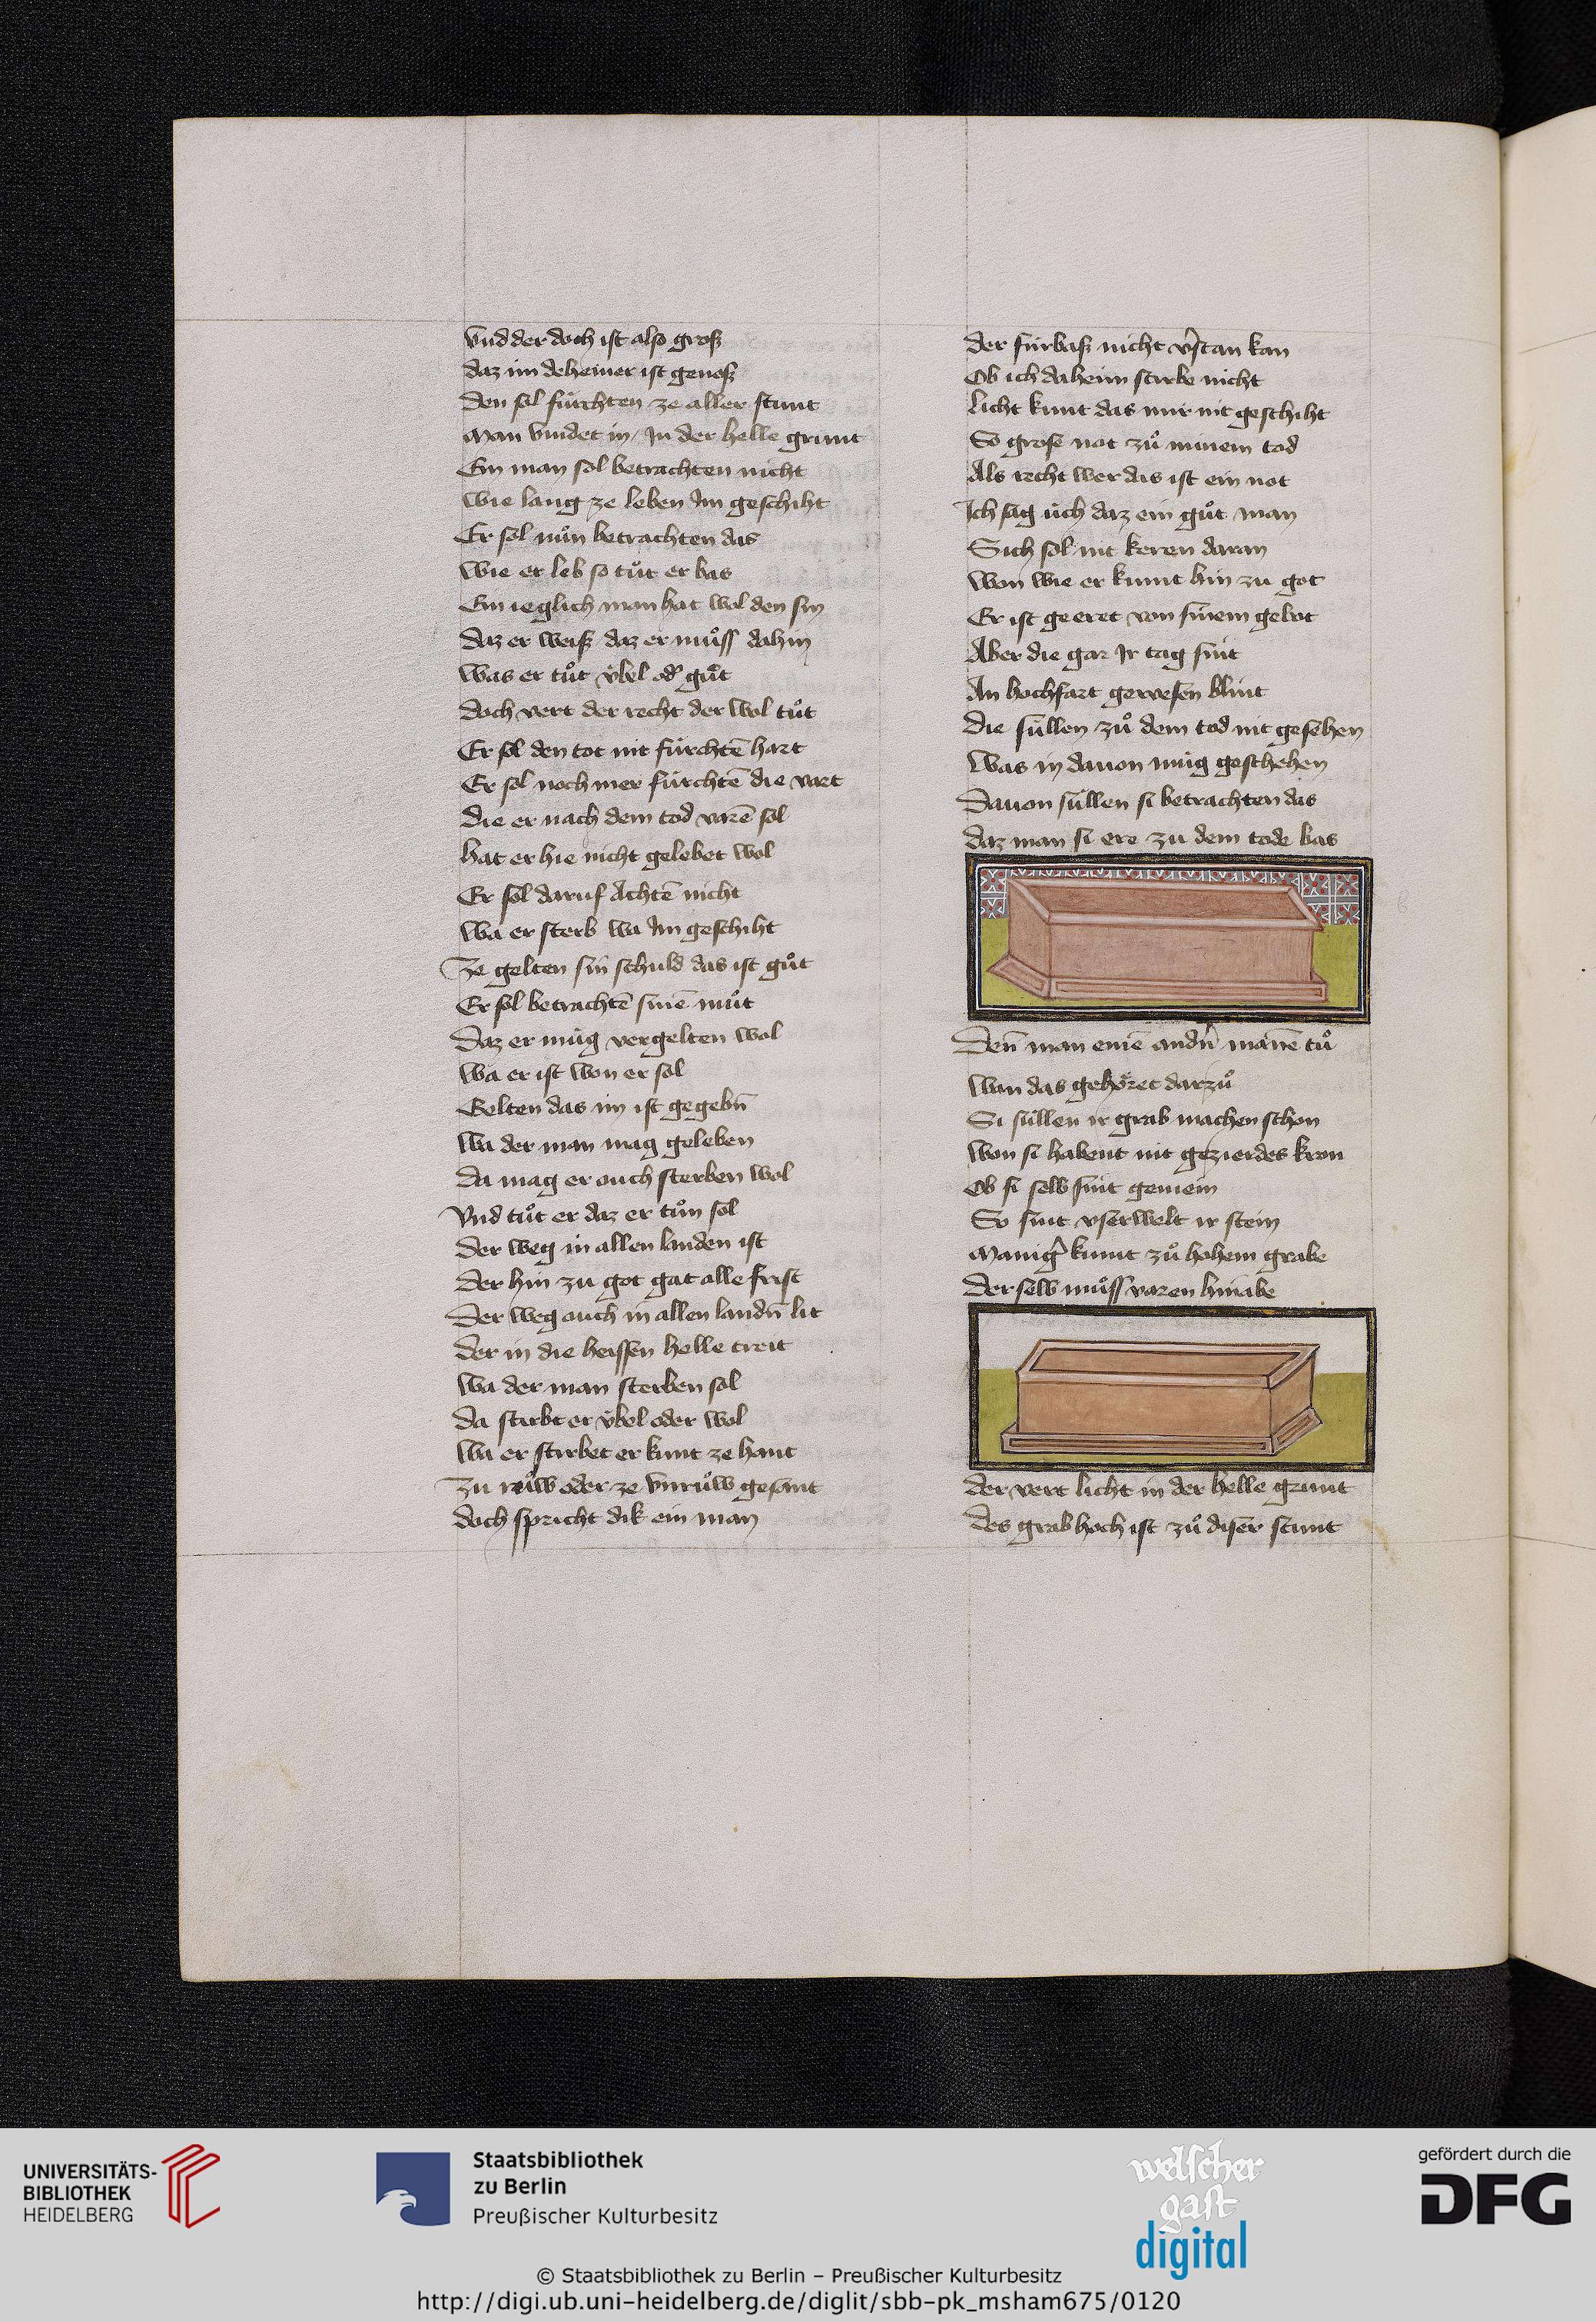 Vnd der doch ist also groſz
daz im deheiner ist genoſz
den sol fürchten ze aller stunt
Man vindet in / In der helle grunt
Ein man sol betrachten nicht
wie lang ze leben Im geschiht
Er sol nuͦn betrachten das
wie er leb so tuͦt er bas
Ein ieglich man hat wol den sin
daz er weiſz daz er muͦſſ dahin
was er tuͦt v̈bel od' guͦt
doch vert der recht der wol tuͦt
Er sol den tot nit fürchtē hart
Er sol noch mer fürchtē die vart
die er nach dem tod varē sol
hat er hie nicht gelebet wol
Er sol daruf Achtē nicht
wa er sterb wa Im geschiht
Ze gelten sin schuld das ist guͦt
Er sol betrachtē sinē muͦt
Daz er müg vergelten wol
wa er ist won er sol
Gelten das im ist gegebn̄
wa der man mag geleben
da mag er ouch sterben wol
Vnd tuͦt er daz er tuͦn sol
der weg in allen landen ist
der hin zu got gat alle frist
Der weg ouch in allen landn̄ lit
der in die heiſſen helle treit
wa der man sterben sol
da stirbt er v̈bel oder wol
wa er stirbet er kunt ze hant
Zu ruͦw oder ze vnruͦw gesant
doch spricht dik ein man
der fürbaſz nicht v'stan kan
Ob ich daheim stirbe nicht
Licht kunt das mir nit geschiht
So grose not zuͦ minem tod
Als recht wer das ist ein not
Ich sag üch daz ein guͦt man
Sich sol nit keren daran
won wie er kumt hin zu got
Er ist geeret von sinem gebot
Aber die gar Ir tag sint
An hochfart gewesen blint
die süllen zuͦ dem tod nit gesehen
was in dauon müg geschehen
Dauon süllen si betrachten das
daz man si ere zu dem tode bas
Den̄ man einē andn̄ mānē tuͦ
wan das gehöret darzuͦ
Si süllen ir grab machen schon
won si habent nit gezierdes kron
Ob si selb sint gemein
So sint vserwelt ir stein
Manig' kumt zuͦ hohem grabe
der selb muͦſſ varen hinabe
der vert licht in der helle grunt
des grab hoch ist zuͦ diser stunt
UNIVERSITÄTS-
BIBLIOTHEK
HEIDELBERG
Staatsbibliothek
zu Berlin
Preußischer Kulturbesitz
welscher
gast
digital
gefördert durch die
DFG
© Staatsbibliothek zu Berlin – Preußischer Kulturbesitz
http://digi.ub.uni-heidelberg.de/diglit/sbb-pk_msham675/0120